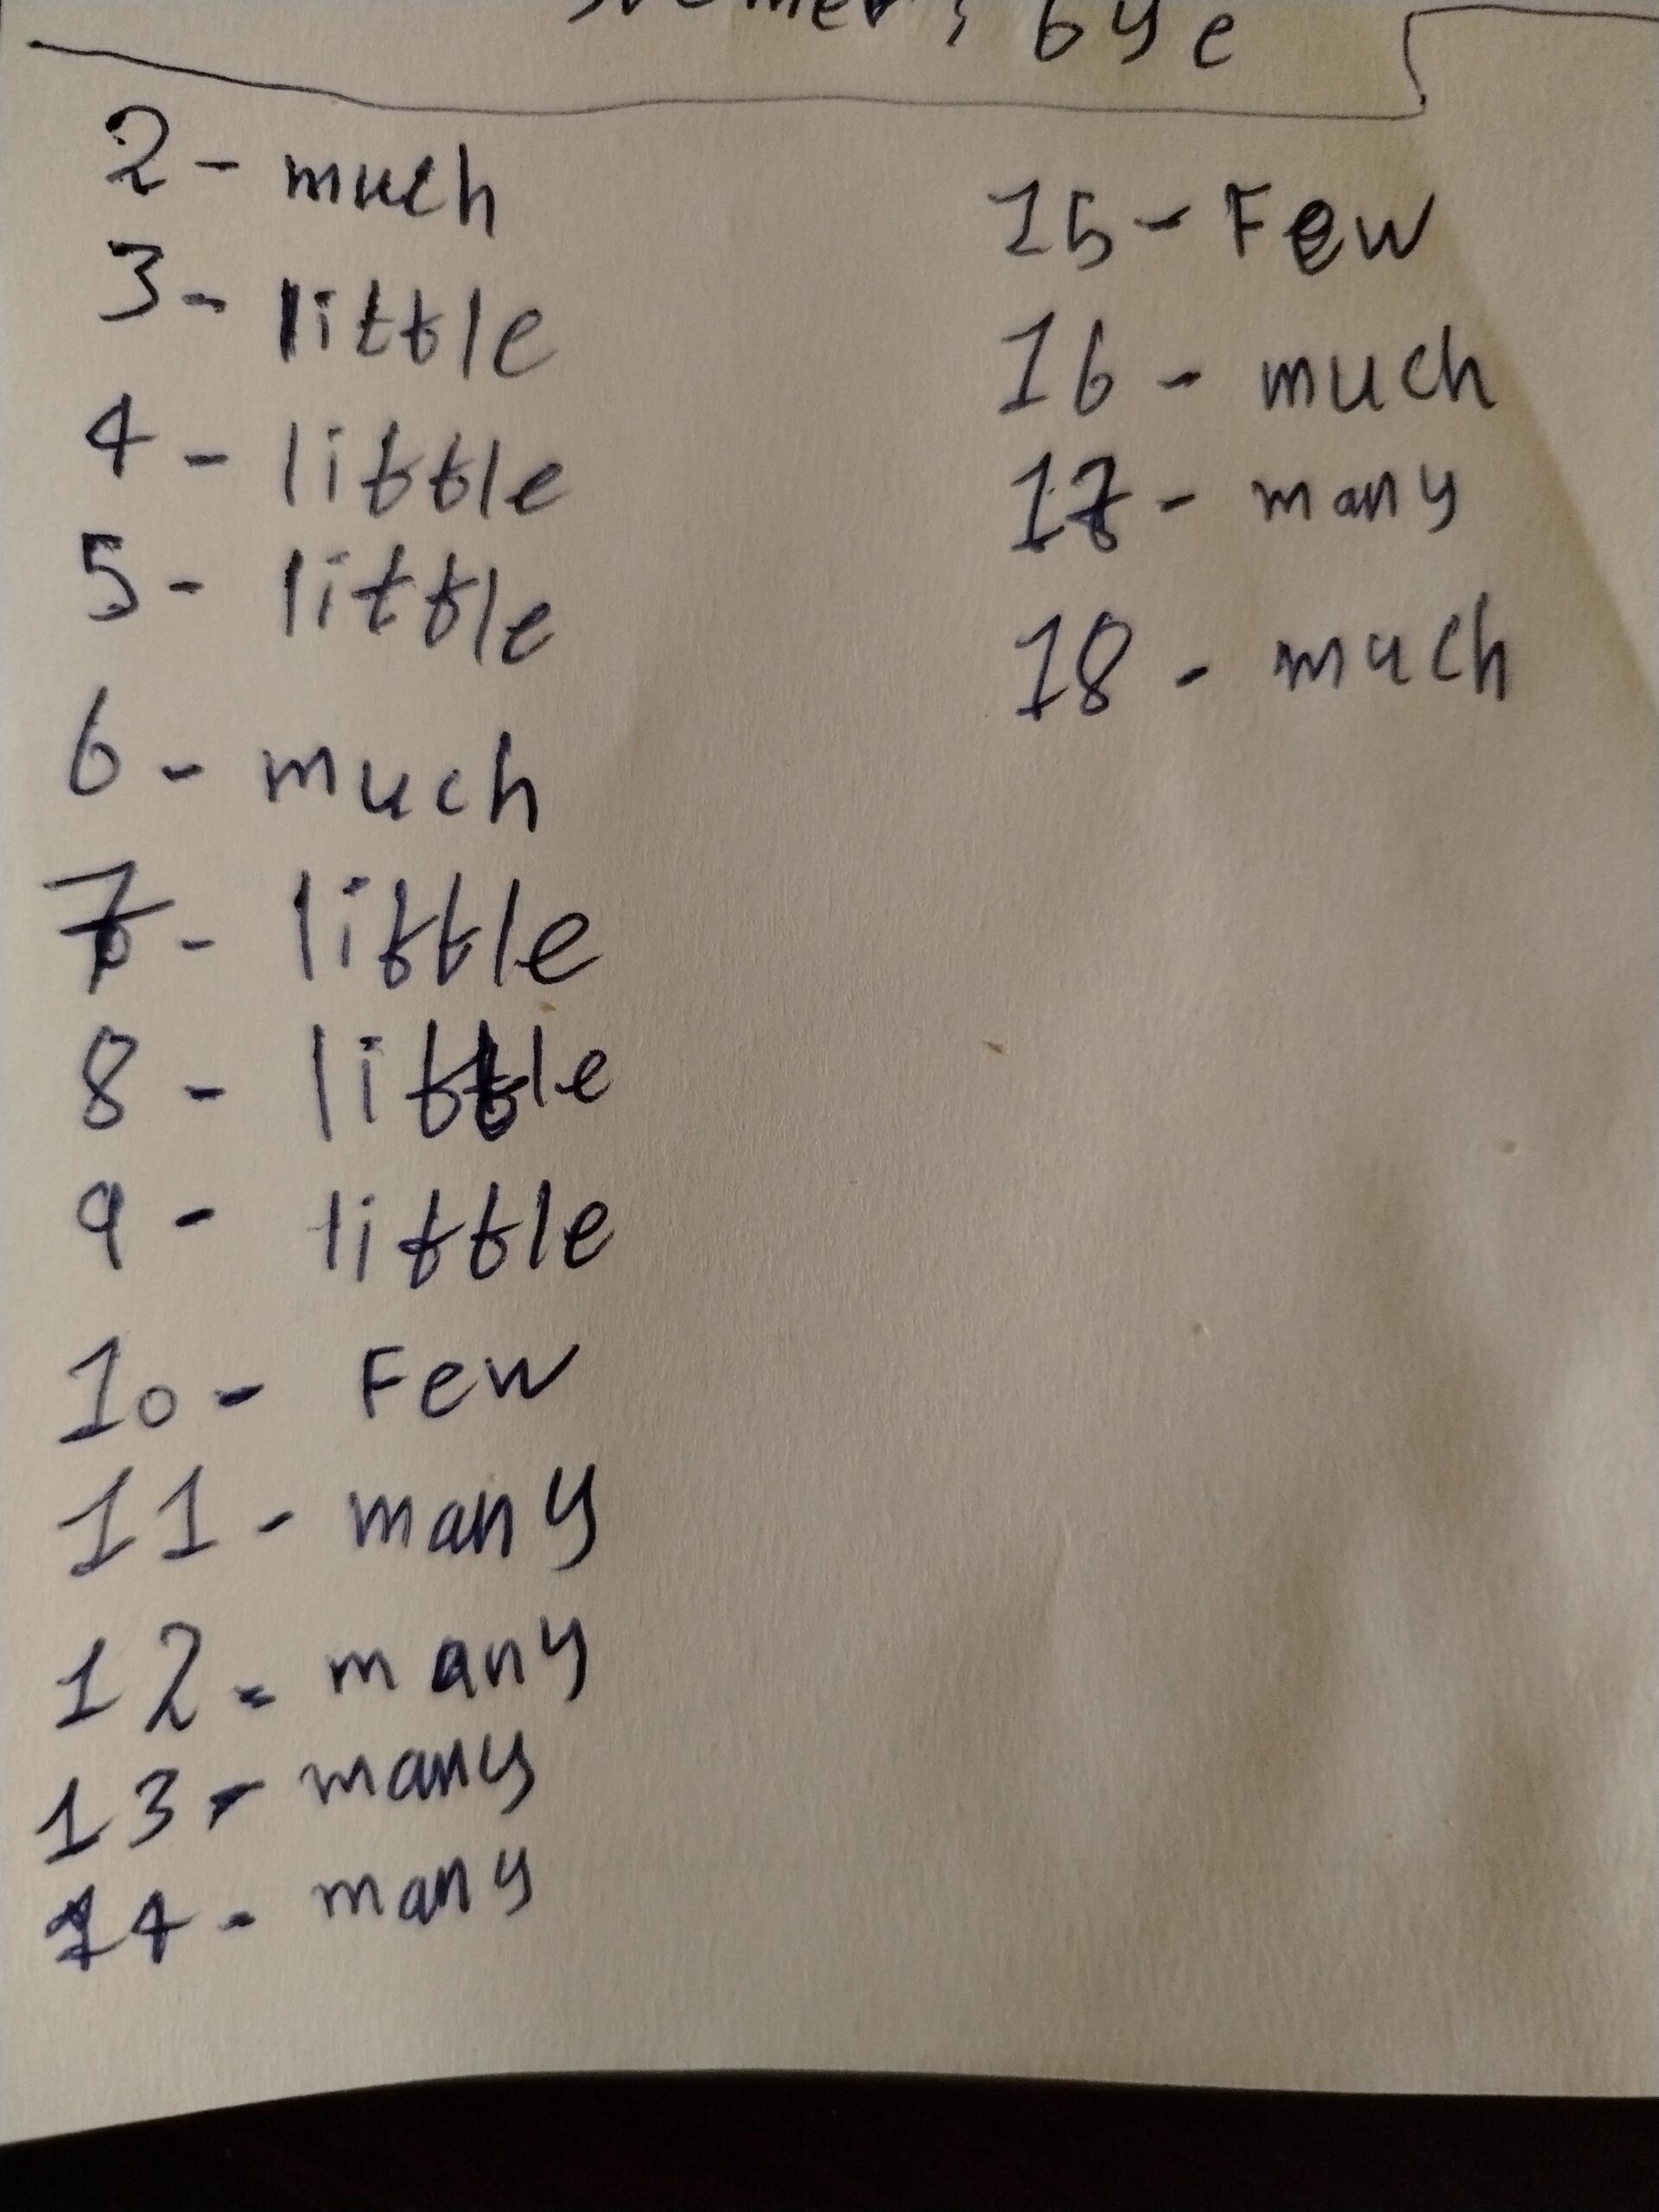 bye
2 - much
3 - little
4 - little
5 - little
6 - much
7 - little
8 - little
9 - little
10 - Few
11 - many
12 - many
13 - many
14 - many
15 - Few
16 - much
17 - many
18 - much